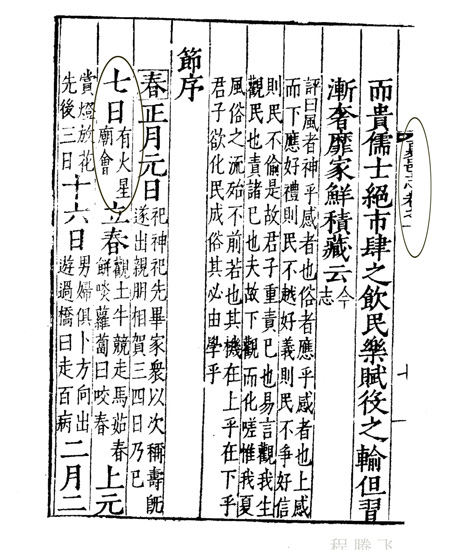 而貴儒士絕市肆之飲民樂賦役之輸但習
漸奢靡家鮮積藏云今志
評曰風者神乎感者也俗者應乎感者也上感
而下應好禮則民不越好義則民不爭好信
則民不偷是故君子重責已也易言觀我生
觀民也責諸已也夫故下觀而化嗟惟我夏
風俗之流殆不前若也其機在上乎在下乎
君子欲化民成俗其必由學乎
節序
春正月元日祀神祀先畢家衆以次稱壽旣遂出親朋相賀三四日乃巳
七日有火星廟會立春觀土牛競走馬茹春餅啖蘿蔔曰咬春上元
賞燈放花先後三日十六日男婦俱卜方向出遊過橋曰走百病二月二
程騰飞